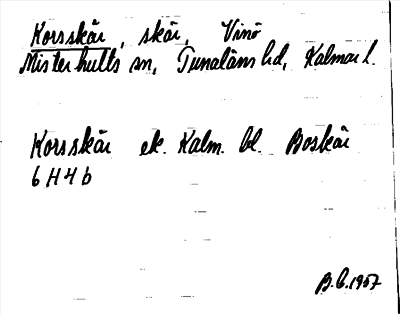 Korsskär, skär, Vinö
Misterhults sn, Tunaläns hd, Kalmar l.
Korsskär ek. Kalm. bl. Boskär
6 H 4 b
B.C. 1957